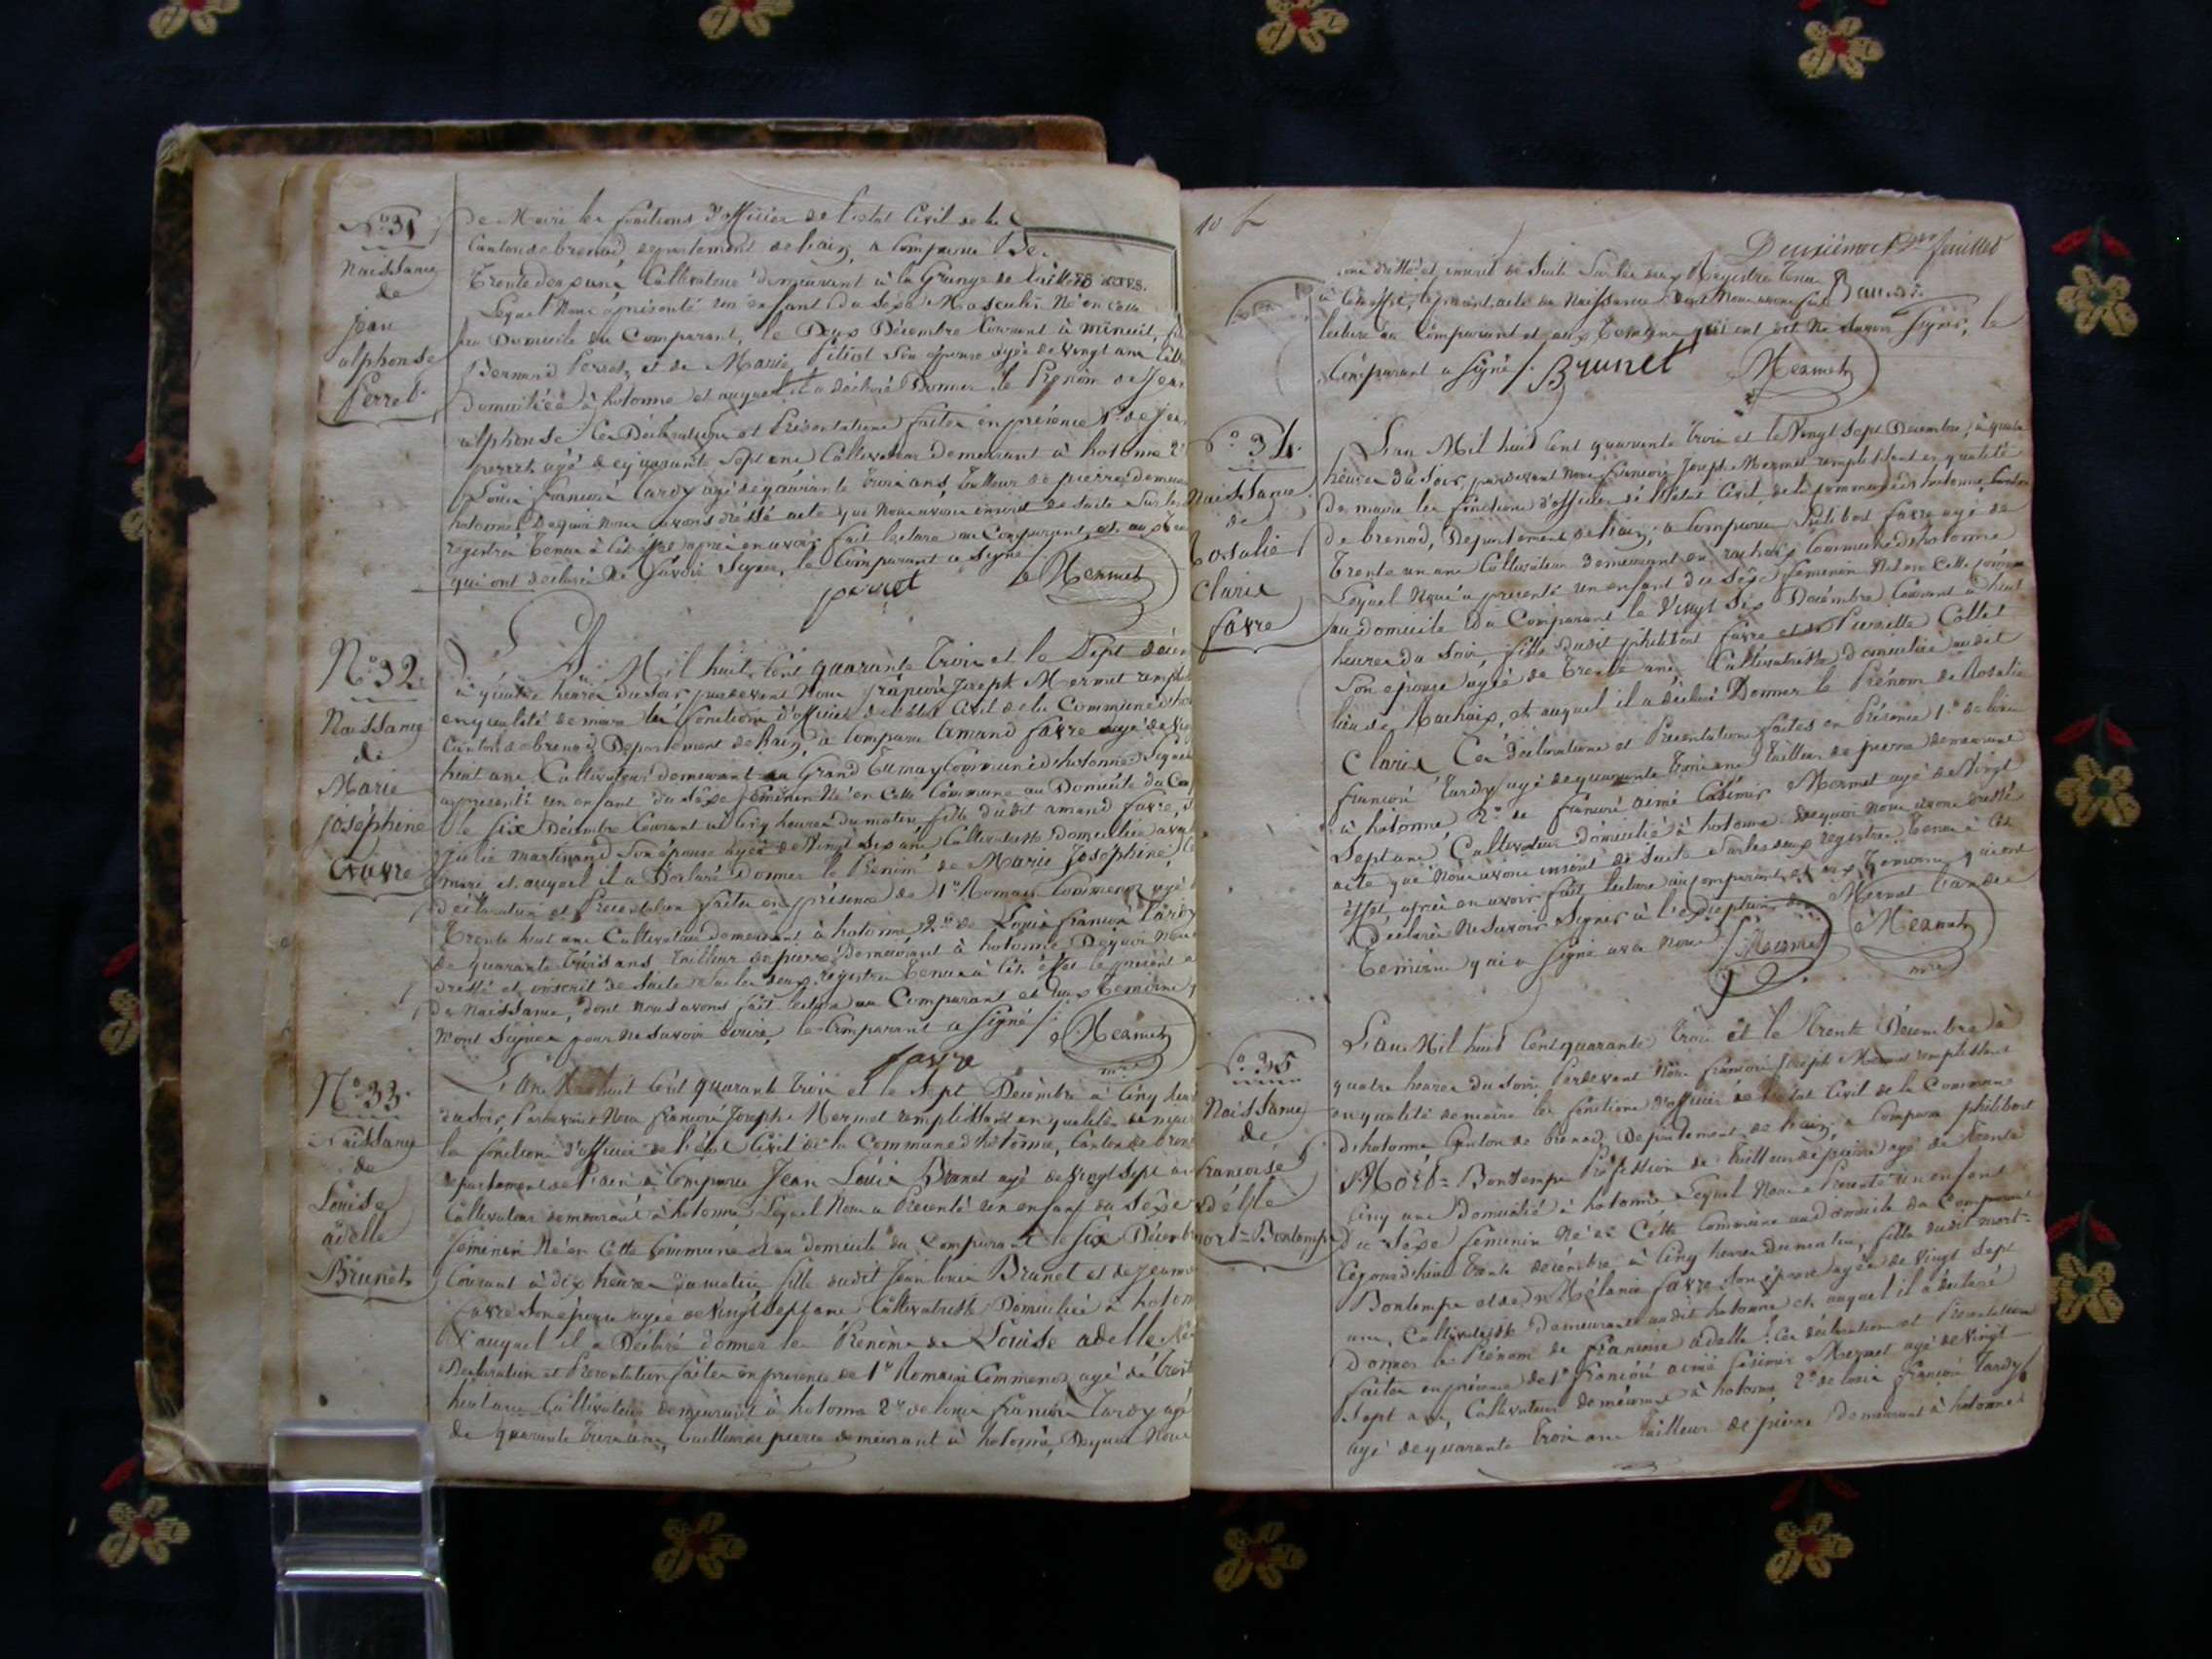 N° 31
Naissance
de
Jean
alphonse
Perret
de Maire les fonctions d'officier de l'état Civil de la
Canton de brenod, département de l'ain, a comparu
trente deux ans, Cultivateur demeurant à la Grange de
Lequel Nous a présenté un enfant du sexe Masculin Né en cette
au Domicile du Comparant, le Deux Décembre Courant à minuit,
Bernard Perret, et de Marie son épouse agée de vingt ans
domiciliée à hotonne et auquel il a déclaré Donner le Prénom de Jean
alphonse Ces Déclarations et Présentations faites en présence 1° de Jean
perret, agé de cinquante sept ans Cultivateur demeurant à hotonne 2°
Louis françois tardy agé de quarante trois ans, tailleur de pierre, demeurant
hotonne, Dequoi Nous avons dréssé acte que Nous avons inscrit de suite sur les
registres tenus à cet effet, après en avoir fait lecture au Comparant, et aux
qui ont déclaré Ne Savoir Signer, le Comparant a Signé
perret Mermet
N° 32
Naissance
de
Marie
joséphine
favre
L'An Mil huit Cent quarante trois et le Sept
à quatre heures du soir, pardevant Nous françois Joseph Mermet
en qualité de maire les fonctions d'officier de l'état Civil de la Commune
Canton de brenod Département de l'ain, a comparu Armand favre agé de
huit ans Cultivateur demeurant au Grand Commune d'hotonne
a présenté un enfant du sexe féminin Né en cette Commune au Domicile du
le six Décembre Courant à Cinq heures du matin fille dudit amand favre,
Julie martinand Son épouse agée de Vingt six ans Cultivatrice Domiciliée avec
mari et auquel il a Déclaré Donner le Prénom de Marie Joséphine
déclaration et Présentation faites en présence de 1° Romain Commenos agé
trente huit ans Cultivateur demeurant à hotonne 2° de Louis françois tardy
de quarante trois ans tailleur de pierre Demeurant à hotonne Dequoi Nous
dréssé et inscrit de suite sur les deux registres tenus à cet effet le présent
de Naissance, dont nous avons fait lecture au Comparant et aux témoins
n'ont Signés pour Ne savoir écrire, le Comparant a Signé
favre Mermet
mre
N° 33
Naissance
de
Louise
adelle
Brunet
L'An Mil huit Cent quarante trois et le Sept Décembre à Cinq
du soir, Pardevant Nous françois Joseph Mermet remplissant en qualité de maire
les fonctions d'officier de l'état Civil de la Commune d'hotonne, Canton de
département de l'ain a Comparu Jean Louis Brunet agé de vingt sept
Cultivateur demeurant à hotonne Lequel Nous a Présenté un enfant du Sexe
féminin Né en Cette Commune au domicile du Comparant le six
Courant à dix heures du matin fille dudit Jean Louis Brunet et de
favre Son épouse agée de vingt sept ans Cultivatrice Domiciliée à
auquel il a Déclaré donner les Prénoms de Louise adelle
Déclaration et Présentation faites en présence de 1° Romain Commenos agé de
huit ans Cultivateur demeurant à hotonne 2° de Louis françois tardy agé
de quarante trois ans, tailleur de pierre demeurant à hotonne, Dequoi Nous
10
Deuxième feuillet
dréssé et inscrit de suite sur les deux Registres tenus
à Cet effet, le présent acte de Naissance Dont Nous avons fait
lecture au Comparant et aux témoins qui ont dit Ne Savoir Signer, le
Comparant a Signé Brunet Mermet
34
Naissance
de
Rosalie
Claris
favre
L'an Mil huit Cent quarante trois et le Vingt sept Décembre, à quatre
heures du soir, pardevant Nous françois Joseph Mermet remplissant en qualité
de maire les fonctions d'officier de l'état Civil, de la commune d'hotonne, Canton
de brenod, Département de l'ain, a comparu Philibert favre agé de
trente un ans Cultivateur demeurant en rachaix Commune d'hotonne
Lequel Nous a présenté un enfant du Sexe féminin Né en Cette
au domicile du Comparant le Vingt six Décembre Courant à huit
heures du Soir, fille dudit philibert favre et de Collet
Son épouse agée de trente ans Cultivatrice domiciliée audit
lieu de Rachaix, et auquel il a déclaré Donner le Prénom de Rosalie
Claris Ces déclarations et Présentations faites en Présence 1° de Louis
françois tardy agé de quarante trois ans tailleur de pierre demeurant
à hotonne 2° de françois aimé Casimir Mermet agé de Vingt
Sept ans Cultivateur domicilié à hotonne dequoi Nous avons dréssé
acte que Nous avons inscrit de suite sur les deux registres tenus à Cet
effet, après en avoir fait lecture au comparant, et aux témoins qui ont
Déclaré Ne Savoir Signer à l'exception de Mermet l'un des
témoins qui a Signé avec Nous Mermet Mermet
mre
35
Naissance
de
françoise
adelle
mort-Bontemps
L'an Mil huit Cent quarante trois et le trente Décembre à
quatre heures du Soir, Pardevant Nous françois Joseph Mermet remplissant
en qualité de maire les fonctions d'officier de l'état Civil de la Commune
d'hotonne Canton de brenod, Département de l'ain, a comparu philibert
Mort= Bontemps Profession de tailleur de pierre agé de trente
Cinq ans domicilié à hotonne Lequel Nous a Présenté un enfant
du Sexe féminin Né en Cette Commune au domicile du Comparant
Cejourd'hui trente décembre à Cinq heures du matin, fille dudit mort=
Bontemps et de Mélanie favre Son épouse agée de vingt sept
ans, Cultivatrice demeurant audit hotonne et auquel il a déclaré
donner le Prénom de françoise adelle. Ces déclaration et Présentation
faites en présence de 1° françois aimé Casimir Mermet agé de vingt
sept ans, Cultivateur demeurant à hotonne, 2° de Louis françois tardy
agé de quarante trois ans tailleur de pierre demeurant à hotonne